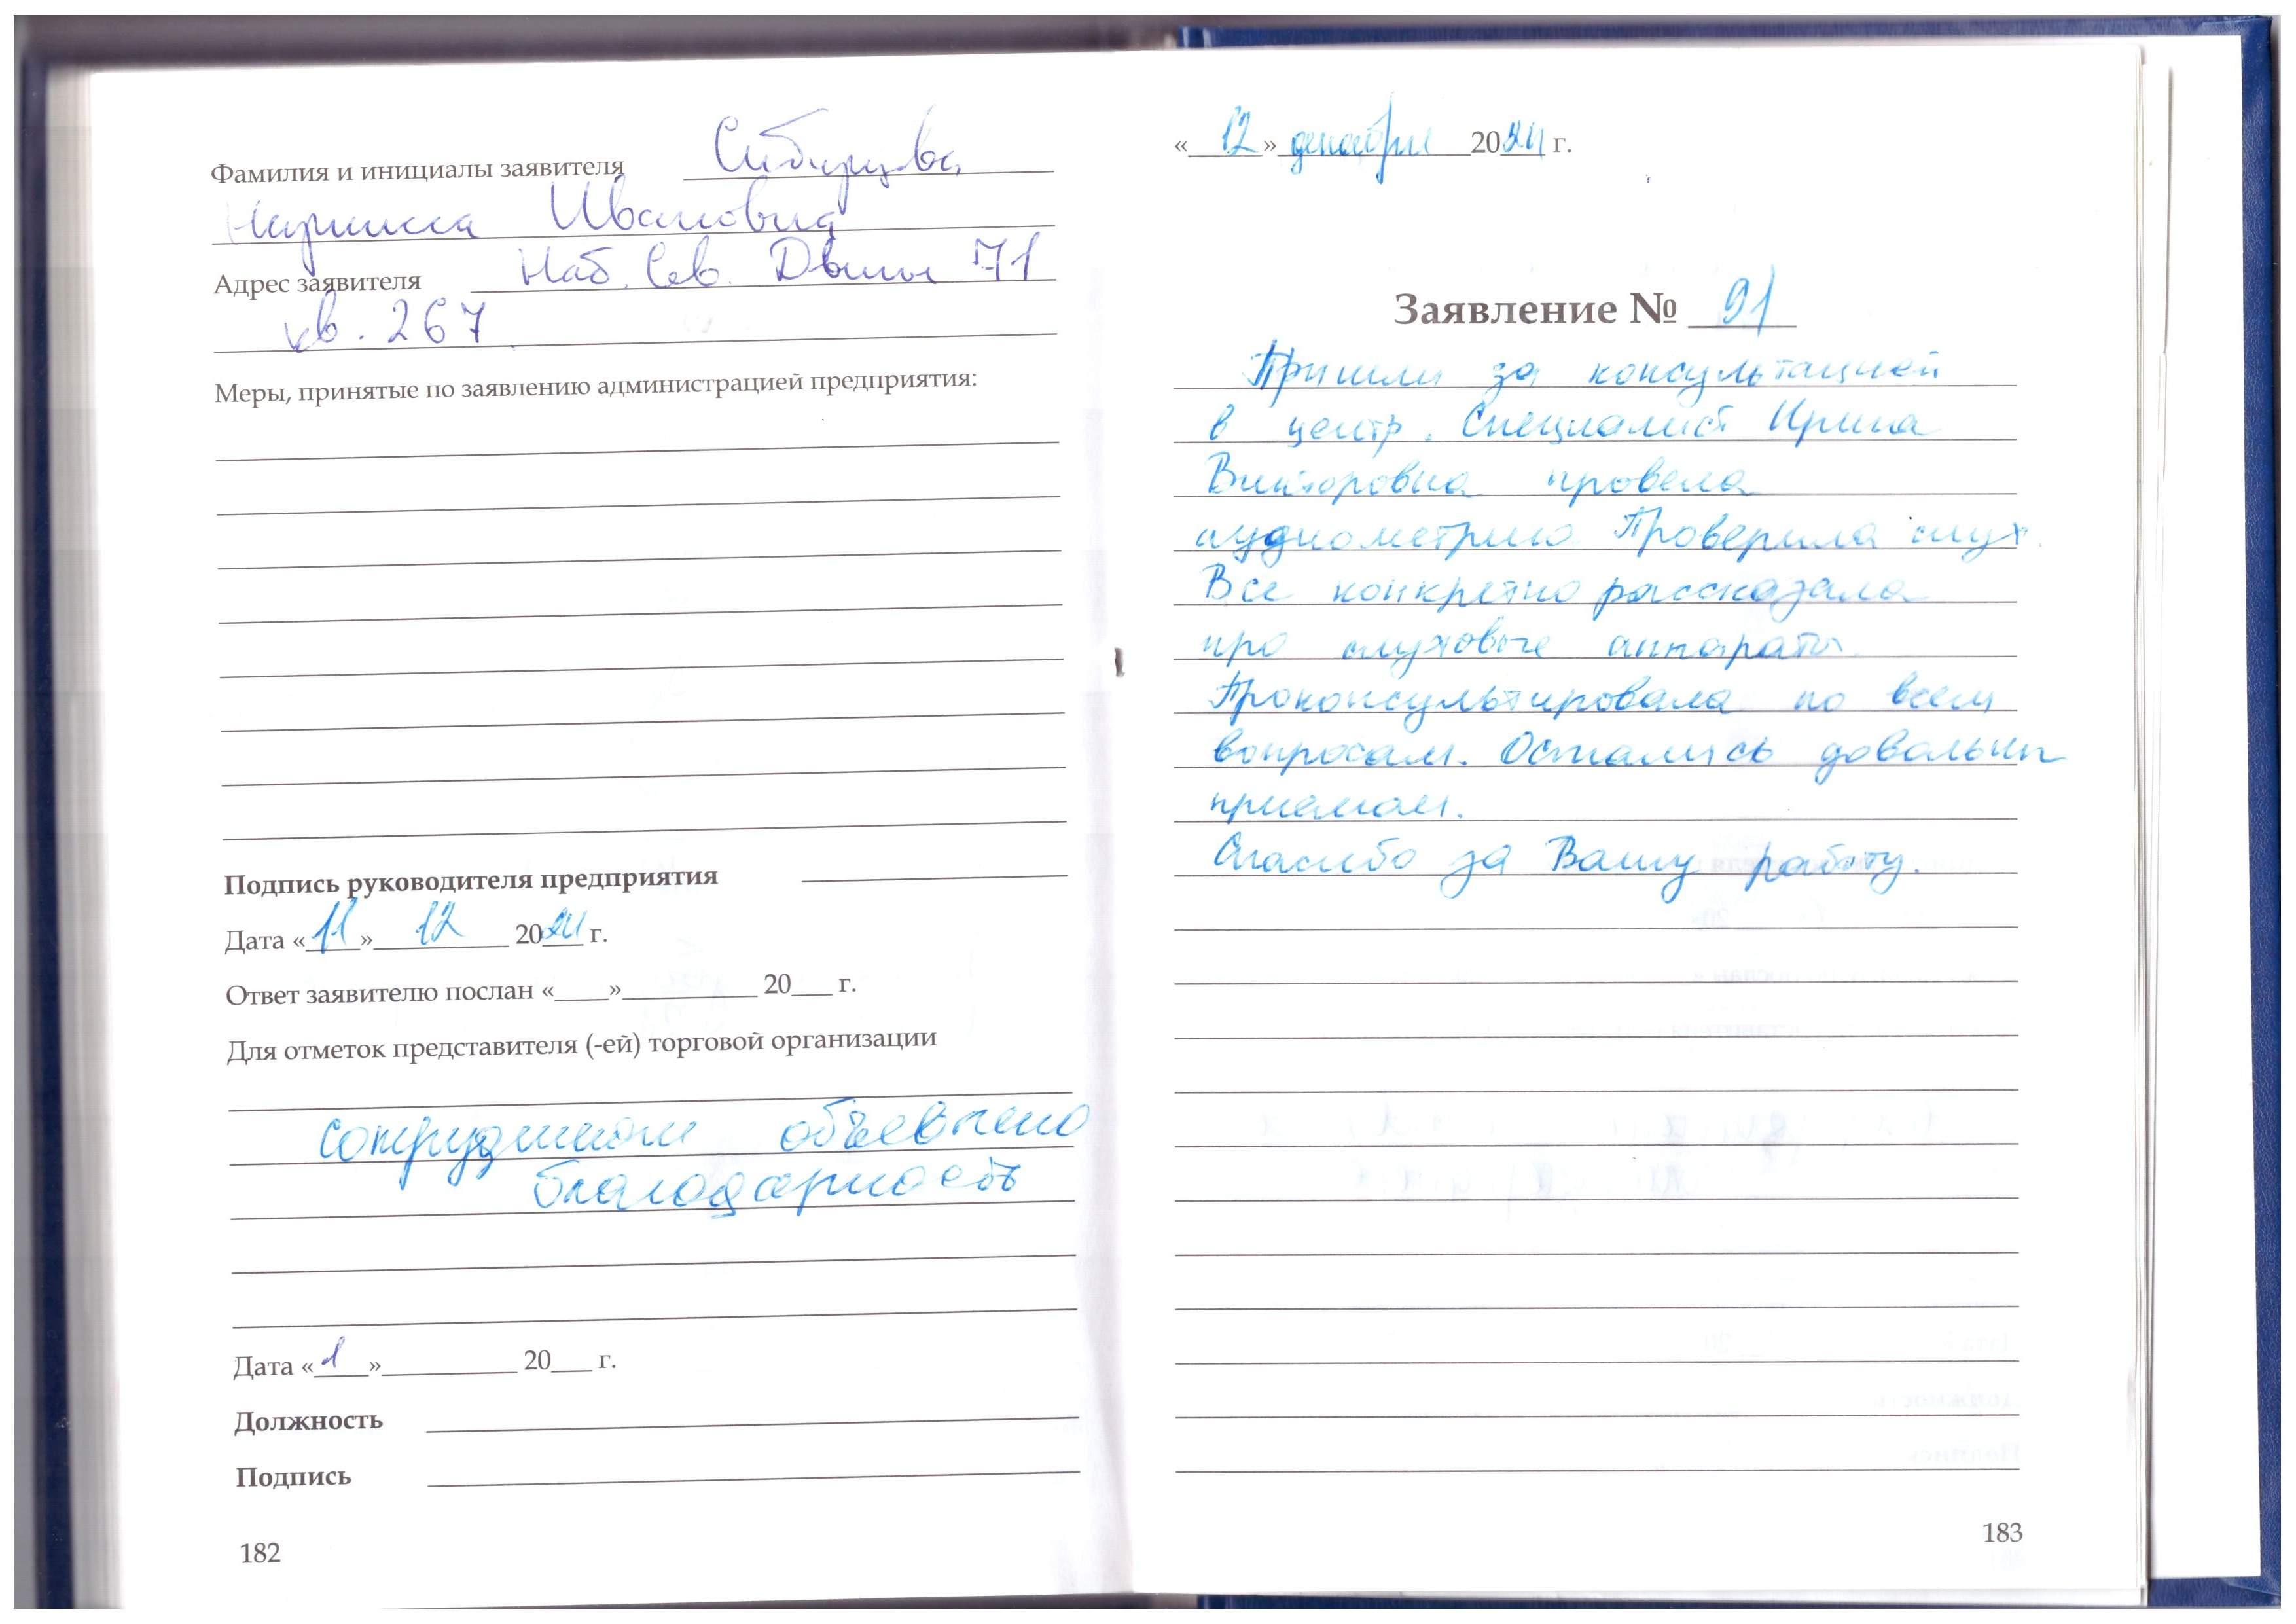 Фамилия и инициалы заявителя Сибирцева
Ивановна
Адрес заявителя Наб. Сев. Двины 71
кв. 267
Меры, принятые по заявлению администрацией предприятия:
Подпись руководителя предприятия
Дата «11» 12 2024 г.
Ответ заявителю послан «____»__________ 20___ г.
Для отметок представителя (-ей) торговой организации
сотрудникам объевлено
благодарность
Дата «1»__________ 20___ г.
Должность
Подпись
182
«12» декабря 2024 г.
Заявление № 91
Пришли за консультацией
в центр. Специалист Ирина
Викторовна провела
аудиометрию Проверила слух.
Все конкретно рассказала
про слуховые аппараты.
Проконсультировала по всем
вопросам. Остались довольны
приемом.
Спасибо за Вашу работу.
183